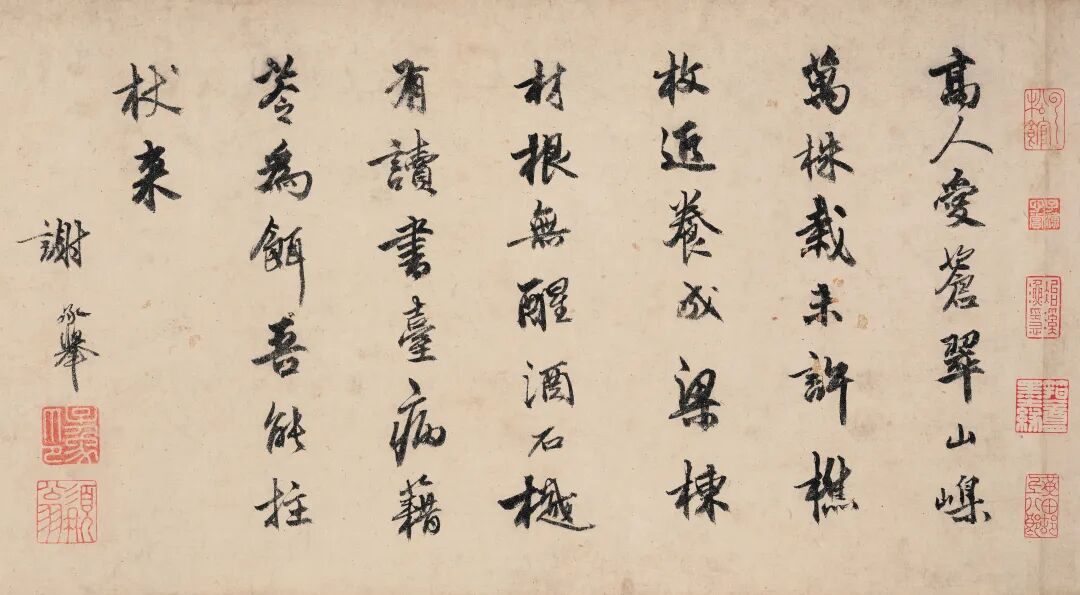 高人愛蒼翠山嶼
萬株栽未許樵
牧近養成梁棟
材根無醒酒石樾
有讀書臺病藉
苓為餌吾能拄
杖来
謝承舉